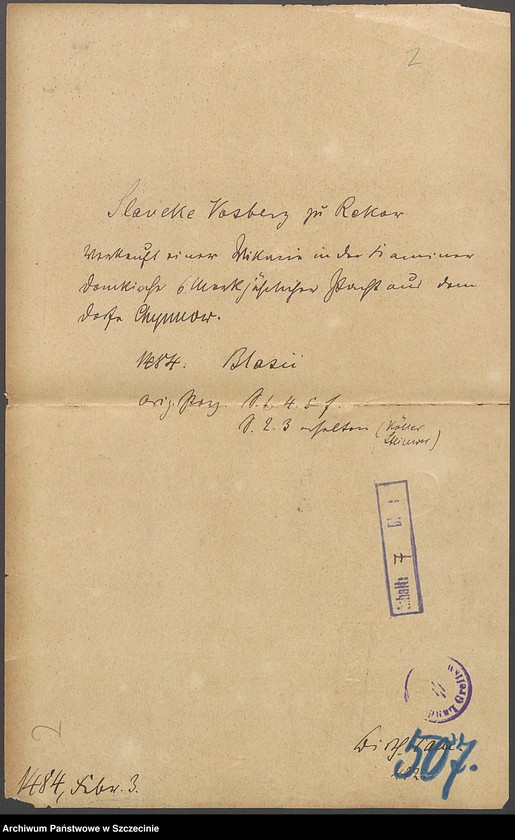 2
Slaveke Vosberg zu Rekow
verkauft einer Vikarie in der Kaminer
Domkirche 6 Mark jährlicher Pacht aus dem
Dorfe Chynnow.
1484. Blasii
orig. Perg. S. 1. 4. 5 f.
S. 2. 3 erhalten (Köller
Inhalt: 7 Bl.
2
507.
1484, Febr. 3.
Archiwum Państwowe w Szczecinie